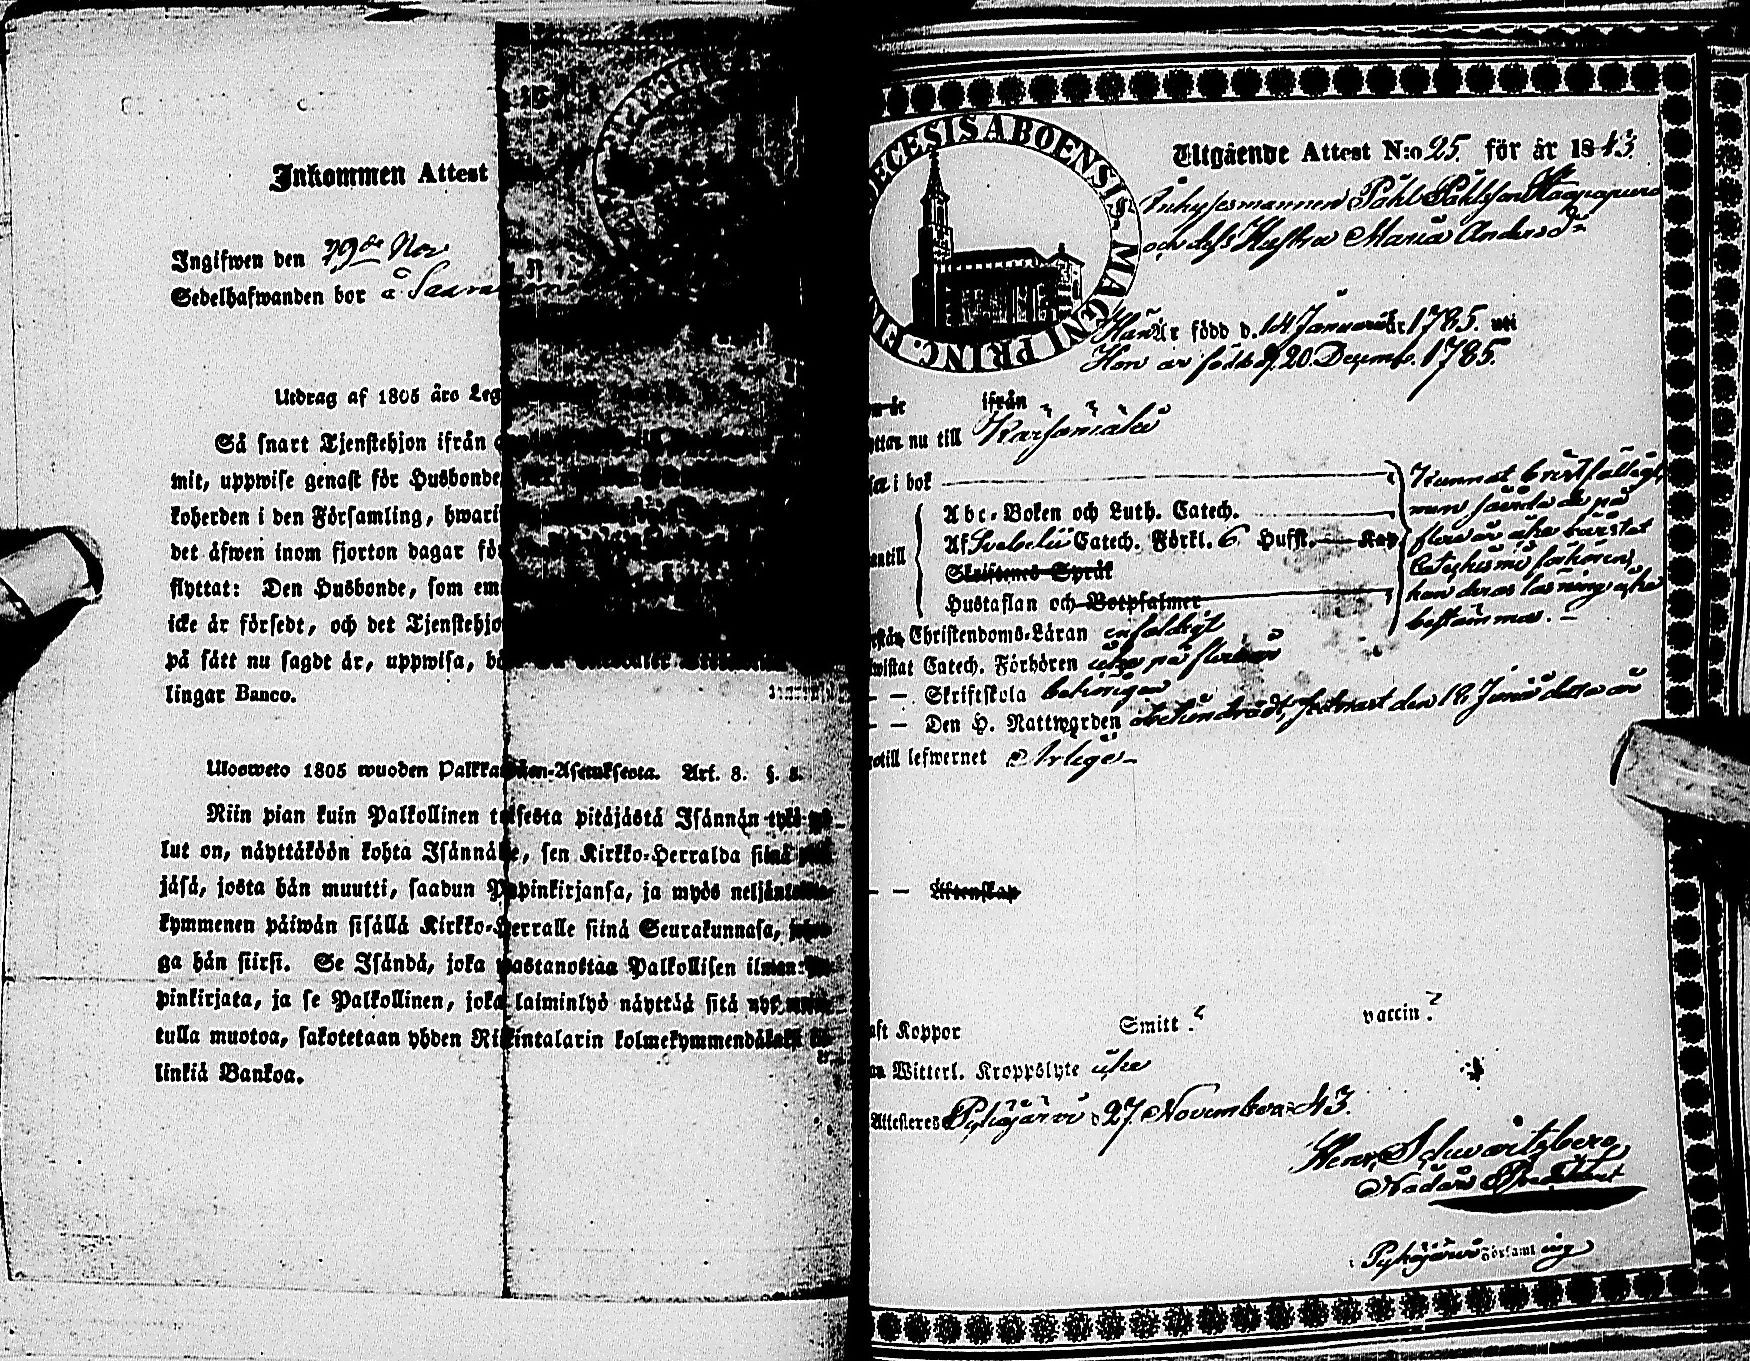 Inkommen Attest
Ingifwen den 29de Nov
Sedelhafwanden bor å
Utdrag af 1805 års Leg
Så snart Tjenstehjon ifrån
mit, uppwise genast för Husbonde
koherden i den Församling, hwari
det äfwen inom fjorton dagar fö
flyttat: Den Husbonde, som em
icke är försedt, och det Tjenstehjo
på sätt nu sagdt är, uppwisa, bö
lingar Banco.
Ulosweto 1805 wuoden Palkka Asetuksesta. Art. 8. §. 8.
Niin pian kuin Palkollinen toisesta pitäjästä Isännän tykö
lut on, näyttäköön kohta Isännälle, sen Kirkko-Herralda siinä
jäsä, josta hän muutti, saadun Papinkirjansa, ja myös neljäntoista
kymmenen päiwän sisällä Kirkko-Herralle siinä Seurakunnasa,
ga hän siirsi. Se Isändä, joka wastanottaa Palkollisen ilman
pinkirjata, ja se Palkollinen, joka laiminlyö näyttää sitä nyt
tulla muotoa, sakotetaan yhden Rikintalarin kolmekymmendäkaksi
linkiä Bankoa.
DIECESIS ABOENSIS. MAGNI PRINC. FIN
Utgående Attest N:o 25. för år 1843.
Inhysesmannen Påhl Påhlsson
och dess Hustru Maria Andersd:r
Han Är född d. 14 Januarii år 1785. uti
Hon är född d. 20. Decemb. 1785.
ifrån
nu till Karsämäki
i bok
Abc-Boken och Luth. Catech.
Af Svebelii Catech. Förkl. 6 Hufst. Kap
antill
Skriftenes Språk
Hustaflan och Botpsalmer
Kunnat
men
flere år icke bevistat
Catechismi förhören,
kan deras läsning icke
bestämmas.
Christendoms-Läran enfaldigt
wistat Catech. Förhören icke på flere år
— — Skriftskola behörigen
— — Den H. Nattwarden obehindradt, sednast den 18. Junii detta år
till lefwernet Ärlige
— — Äktenskap
aft Koppor Smitt ? vaccin ?
Witterl. Kroppslyte icke
Attesteres Pyhäjärvi d. 27. November 43.
Henr. Schwartzberg
Pyhäjärvi Församling